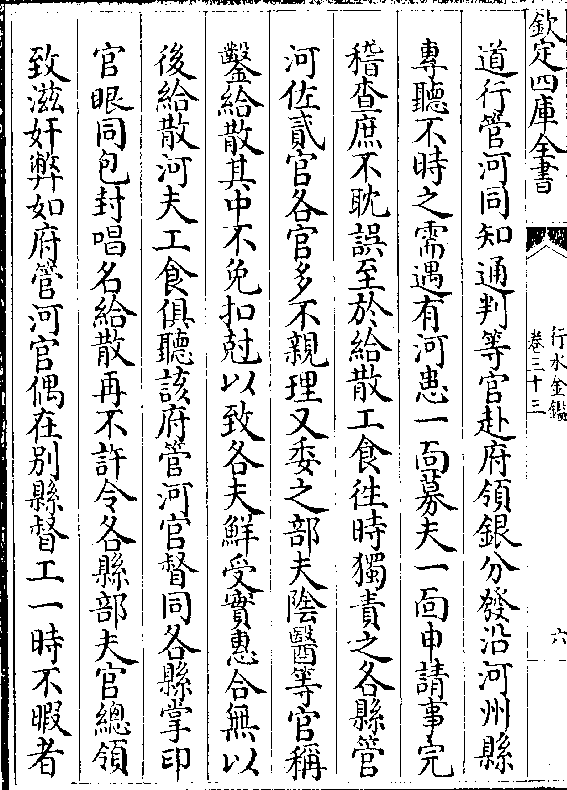 欽定四庫全書
行水金鑑
卷三十三
六
道行管河同知通判等官赴府領銀分發沿河州縣
專聽不時之需遇有河患一靣募夫一靣申請事完
稽查庶不耽誤至於給散工食徃時獨責之各縣管
河佐貳官各官多不親理又委之部夫陰醫等官稱
鑿給散其中不免扣尅以致各夫鮮受實惠合無以
後給散河夫工食俱聽該府管河官督同各縣掌印
官眼同包封唱名給散再不許令各縣部夫官總領
致滋奸弊如府管河官偶在别縣督工一時不暇者